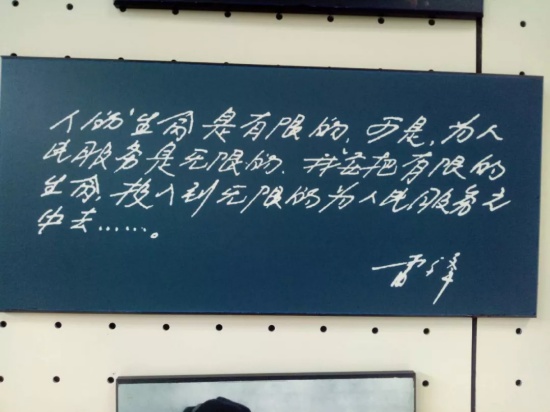 人的生命是有限的,可是,为人
民服务是无限的,我要把有限的
生命,投入到无限的为人民服务之
中去……。
雷锋